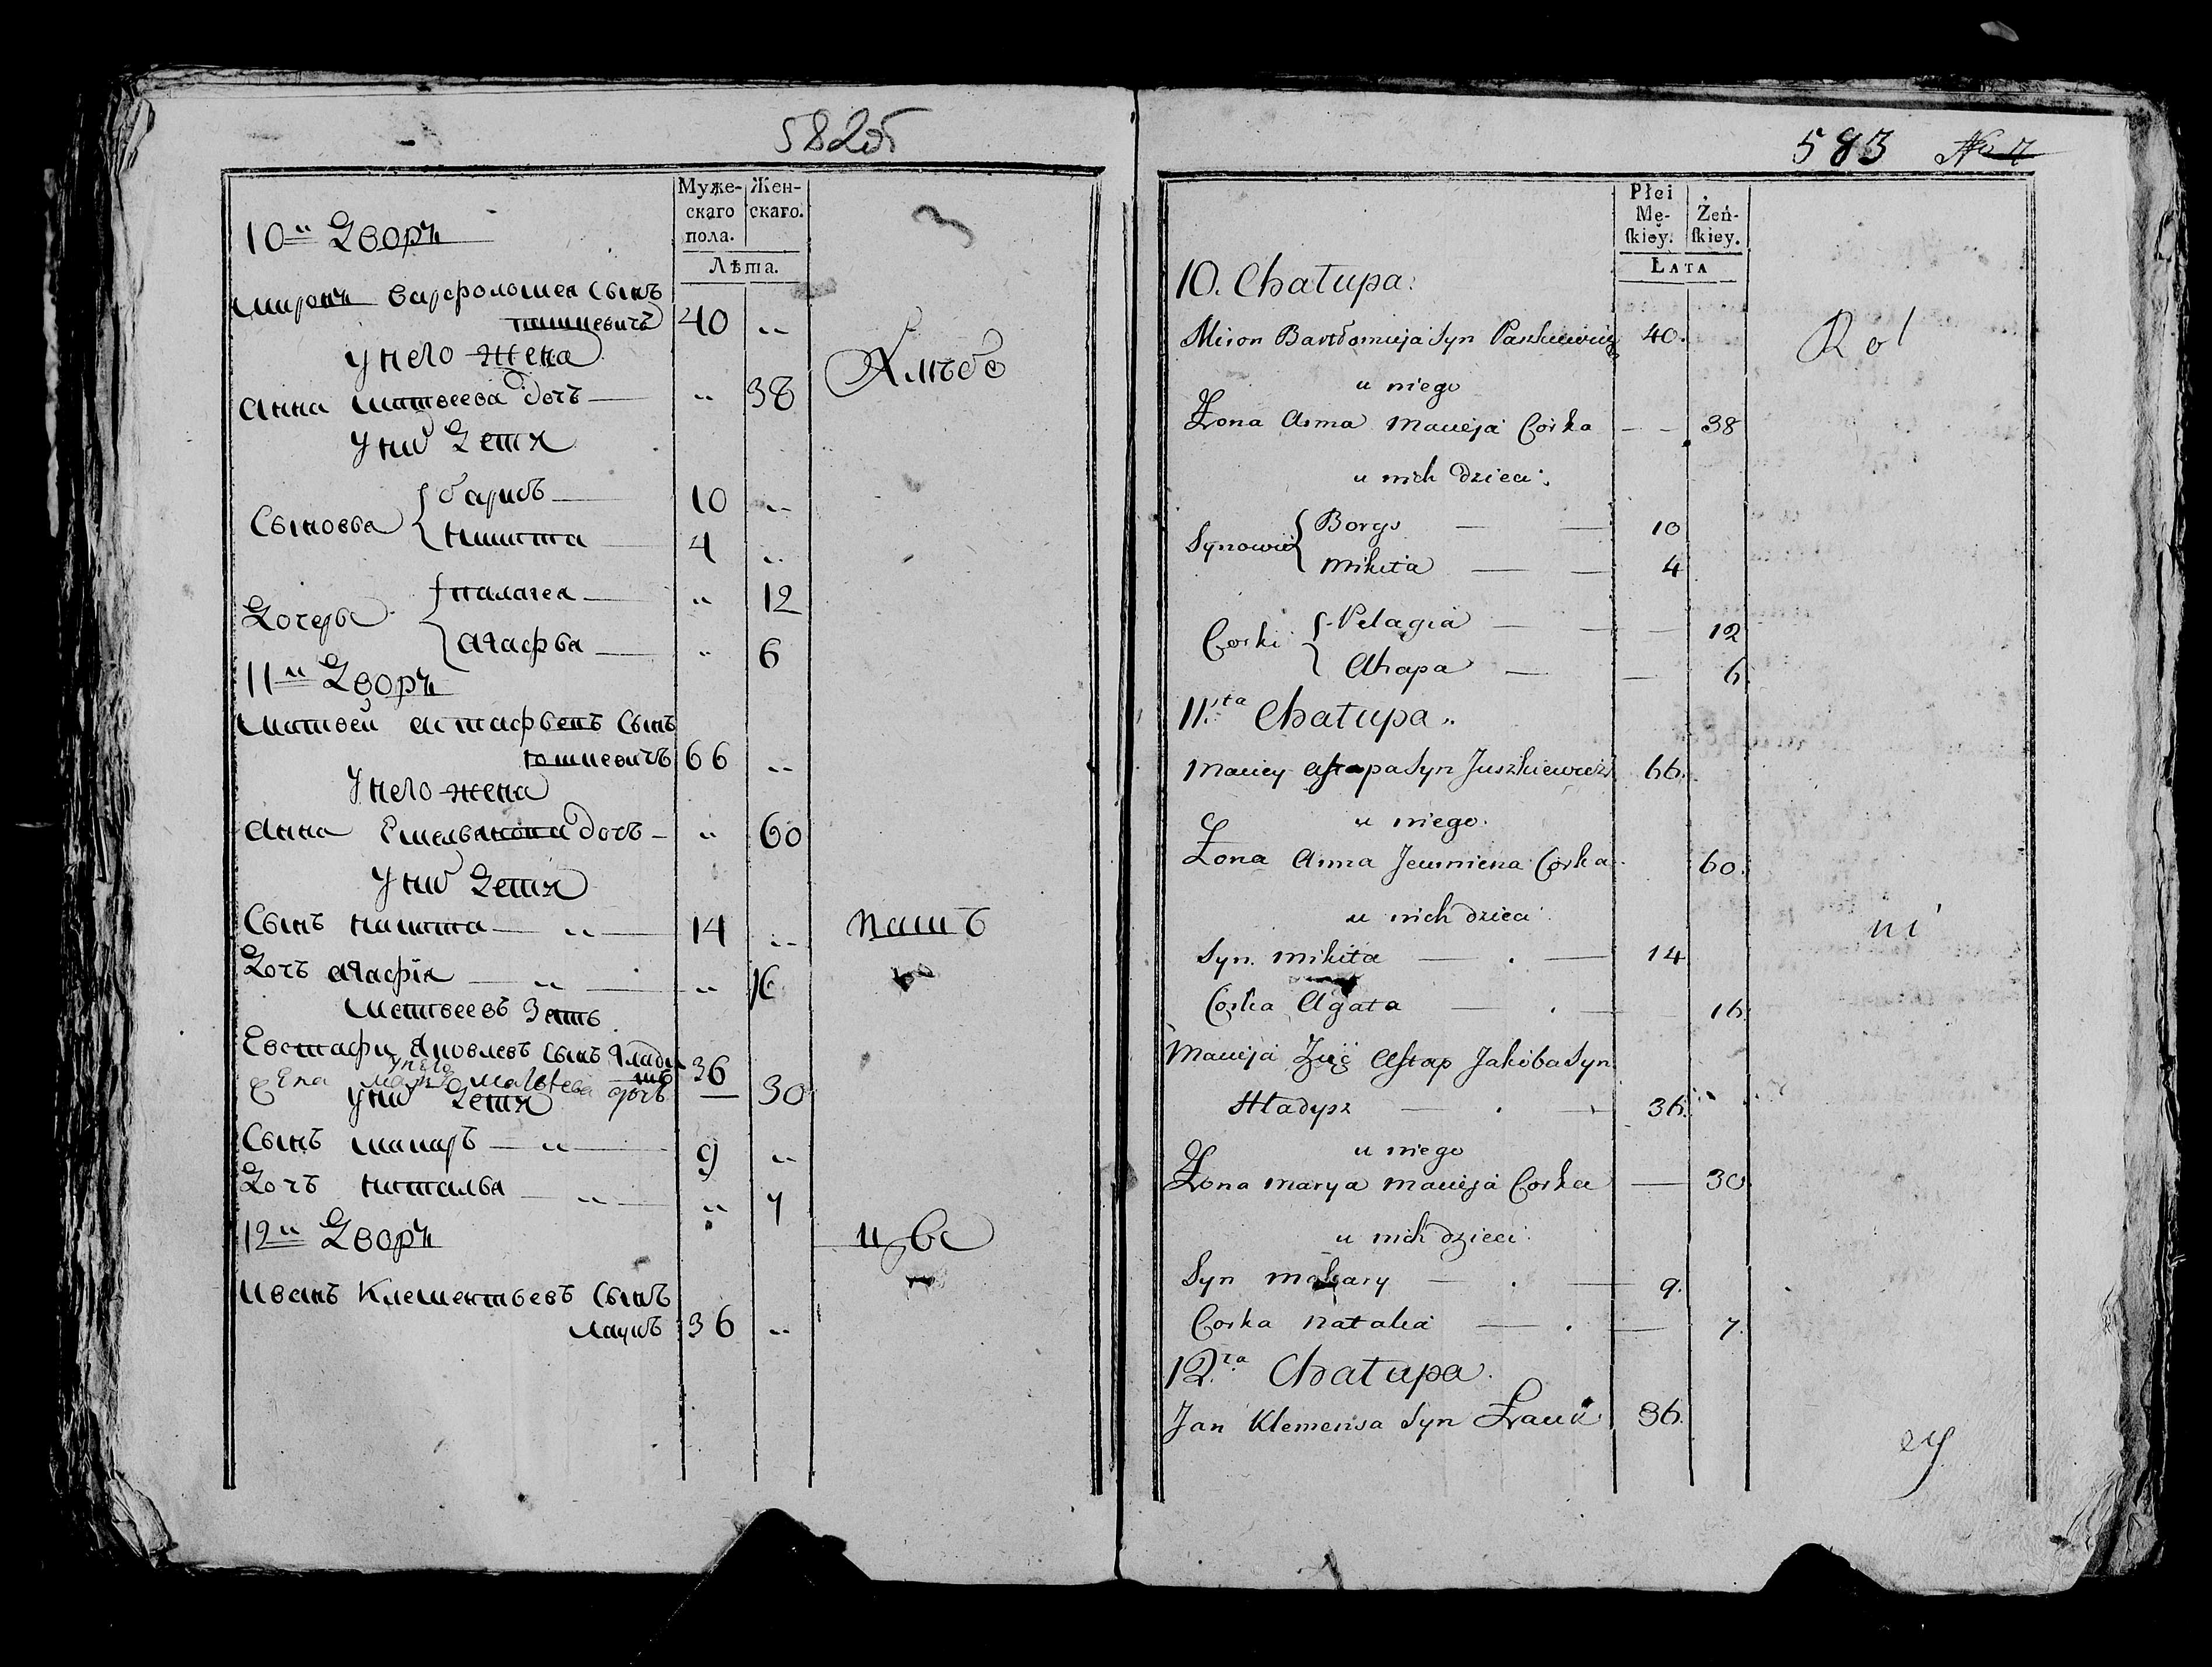 582об
Муже-
скаго
пола.
Жен-
скаго.
Лѣта.
10ъ Дворъ
Миронъ Варфоломея Сынъ
Пашкевичъ 40 „
у него жена
Анна Матвеева дочь — „ 38
Хлѣбо
у них Дети
Сыновья { Барисъ — 10 „
Никита — 4 „
Дочерья { Палагея — „ 12
Агафья — „ 6
11ъ Дворъ
Матвей Астафьевъ Сынъ
Юшкевичъ 66 „
у него жена
Анна дочь — „ 60
у них Дети
Сынъ Никита — „ — 14 „
пашъ
Дочь Агафія — „ — „ 16
Матвеевъ Зять
Евстафи Яковлевъ Сынъ Гладышъ 36
у него
жена Марья Матвеева дочь 30
у них Дети
Сынъ Макаръ — „ — 9 „
Дочь Натталья — „ — „ 7
12ъ Дворъ
Иванъ Клементьевъ Сынъ
Лаукъ 36 „
583 No 7
Płci
Mę-
skiey.
Żeń-
skiey.
Lata
10. Chałupa.
Miron Bartłomieja Syn Paszkiewicz 40.
Rol
u niego
Żona Anna Macieja Corka — — 38
u nich dzieci.
Synowie { Borys — — 10
Mikita — — 4
Corki { Pelagia — — — 12
Ahapa — — 6
11.sta Chałupa.
Maciey Astapa Syn Juszkiewicz 66.
u niego
Żona Anna Corka 60.
u nich dzieci
ni
Syn. Mikita — . — 14
Corka Agata — . — 16.
Macieja Zięć Astap Jakóba Syn
Hładysz — . — 36.
u niego
Żona Marya Macieja Corka — 30
u nich dzieci
Syn Makary — . — 9.
Corka Natalia — . — 7.
12.ta Chałupa.
Jan Klemensa Syn Łauk 36.
ey